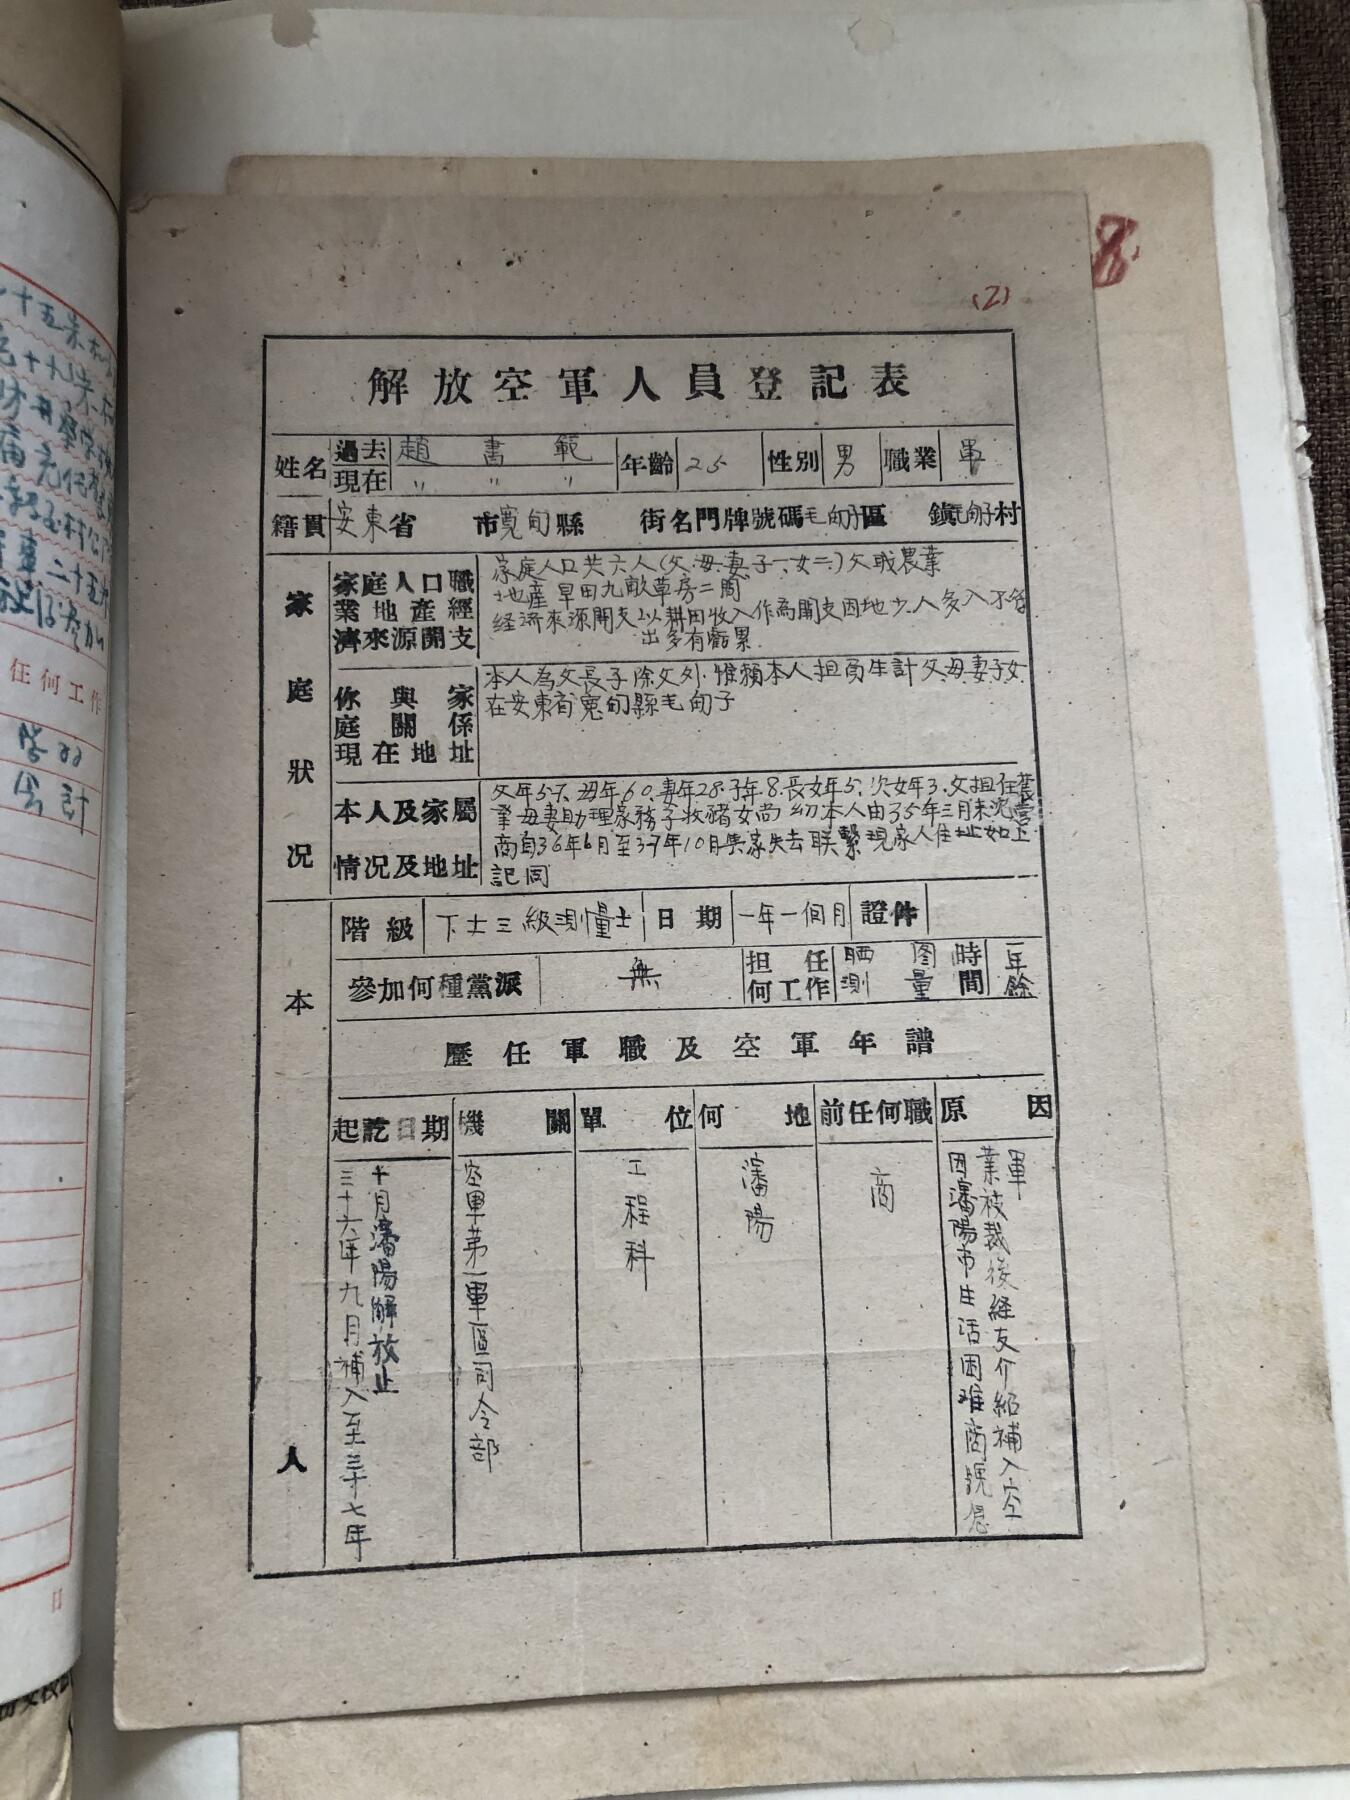 8
(2)
解放空軍人員登記表
姓名 過去 趙書範 年齡 25 性別 男 職業 軍
現在 〃 〃 〃
籍貫 安東省 市寬甸縣 街名門牌號碼毛甸子區 鎮毛甸子村
家庭狀況
家庭人口職業地產經濟來源開支
家庭人口共六人(父.母.妻子一.女二.)父職農業
地產 旱田九畝草房二間
経済來源開支以耕田收入作為開支因地少.人多入不
出多有虧累
你與家庭關係現在地址
本人為父長子除父外.惟賴本人担負生計父母妻子女
在安東省寬甸縣毛甸子
本人及家屬情況及地址
父年57.母年60.妻年28.子年.8.長女年5.次女年3.父担任農
業母妻助理家務子牧豬女尚幼本人由35年三月來沈營
商自36年6月至37年10月與家失去联繫現家人住址如上
記同
本人
階級 下士三級測量士 日期 一年一個月 證件
參加何種黨派 無 担任何工作 晒圖測量 時間 一年餘
歷任軍職及空軍年譜
起訖日期 機關 單位 何地 前任何職 原因
三十六年九月補入至三十七年
十月瀋陽解放止
空軍第一軍區司令部
工程科
瀋陽
商
因瀋陽市生活困难商號
業被裁後経友介紹補入空
軍
任何工作
學習
会計